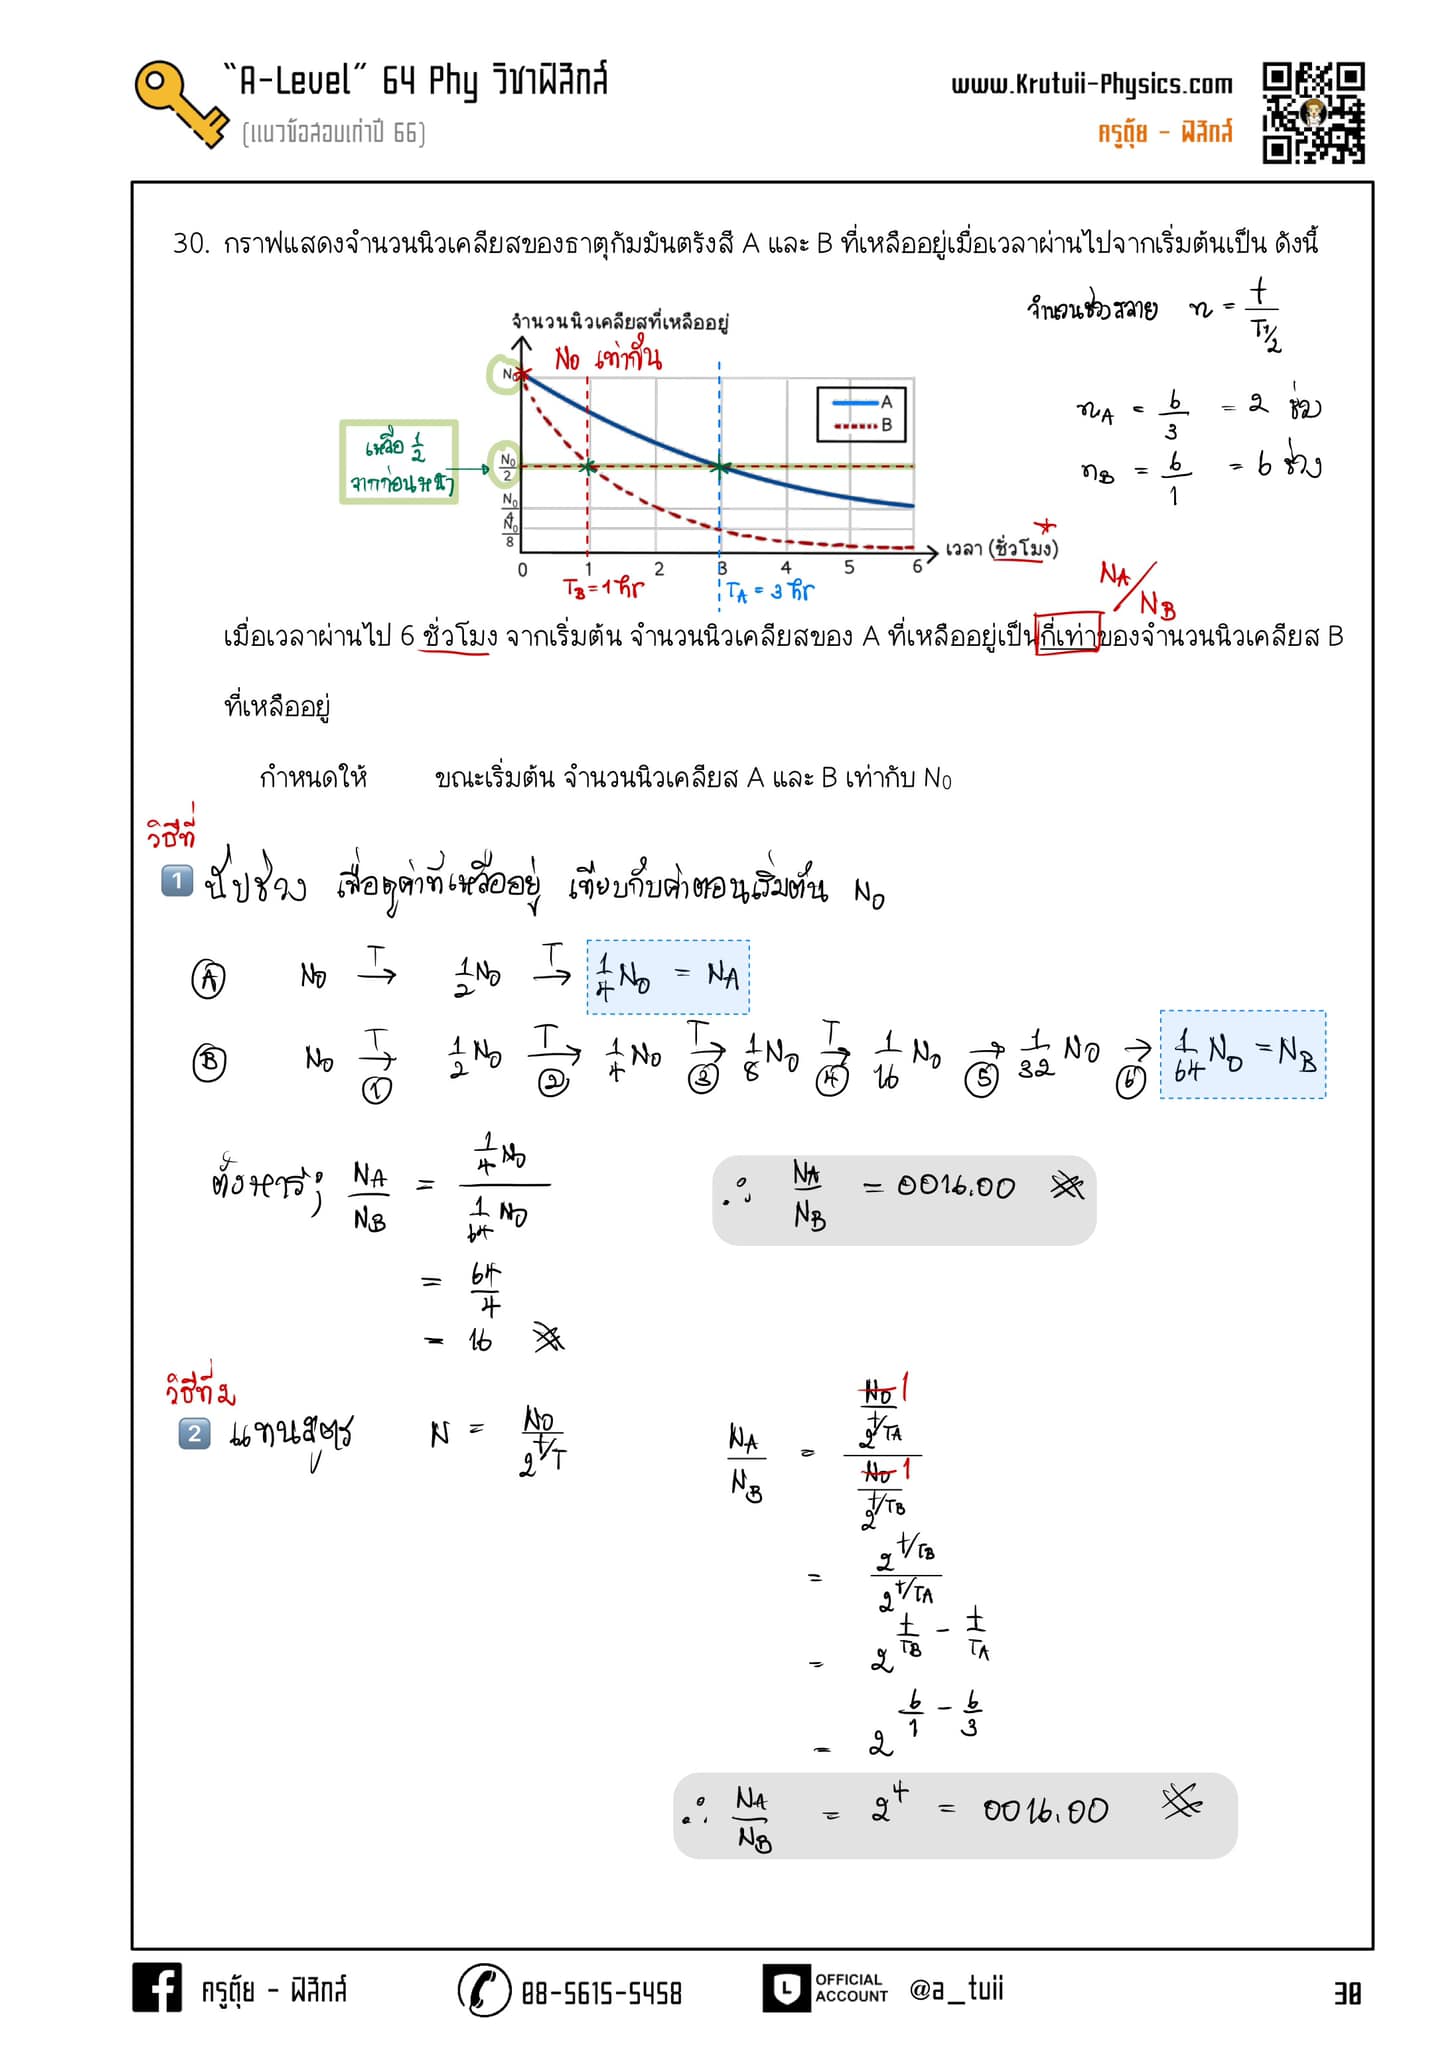 "A-Level" 64 Phy วิชาฟิสิกส์
(แนวข้อสอบเก่าปี 66)
www.Krutuii-Physics.com
ครูตุ้ย - ฟิสิกส์
30. กราฟแสดงจำนวนนิวเคลียสของธาตุกัมมันตรังสี A และ B ที่เหลืออยู่เมื่อเวลาผ่านไปจากเริ่มต้นเป็น ดังนี้
จำนวนช่วงสลาย n = t/T1/2
nA = 6/3 = 2 ช่วง
nB = 6/1 = 6 ช่วง
จำนวนนิวเคลียสที่เหลืออยู่
N0 เท่ากัน
N0
A
B
เหลือ 1/2
จากก่อนหน้า
N0/2
N0/4
N0/8
เวลา (ชั่วโมง)
0 1 2 3 4 5 6
TB = 1 hr
TA = 3 hr
NA/NB
เมื่อเวลาผ่านไป 6 ชั่วโมง จากเริ่มต้น จำนวนนิวเคลียสของ A ที่เหลืออยู่เป็นกี่เท่าของจำนวนนิวเคลียส B
ที่เหลืออยู่
กำหนดให้ ขณะเริ่มต้น จำนวนนิวเคลียส A และ B เท่ากับ N0
วิธีที่
1 นับช่วง เพื่อดูค่าที่เหลืออยู่ เทียบกับค่าตอนเริ่มต้น N0
A N0 T→ 1/2 N0 T→ 1/4 N0 = NA
B N0 T→ 1 1/2 N0 T→ 2 1/4 N0 T→ 3 1/8 N0 T→ 4 1/16 N0 → 5 1/32 N0 → 6 1/64 N0 = NB
ตั้งหาร; NA/NB = 1/4 N0 / 1/64 N0
∴ NA/NB = 0016.00
= 64/4
= 16
วิธีที่ 2
2 แทนสูตร N = N0/2^t/T
NA/NB = N0 1/2^t/TA / N0 1/2^t/TB
= 2^t/TB / 2^t/TA
= 2^t/TB - t/TA
= 2^6/1 - 6/3
∴ NA/NB = 2^4 = 0016.00
ครูตุ้ย - ฟิสิกส์
08-5615-5458
L OFFICIAL ACCOUNT @a_tuii
30